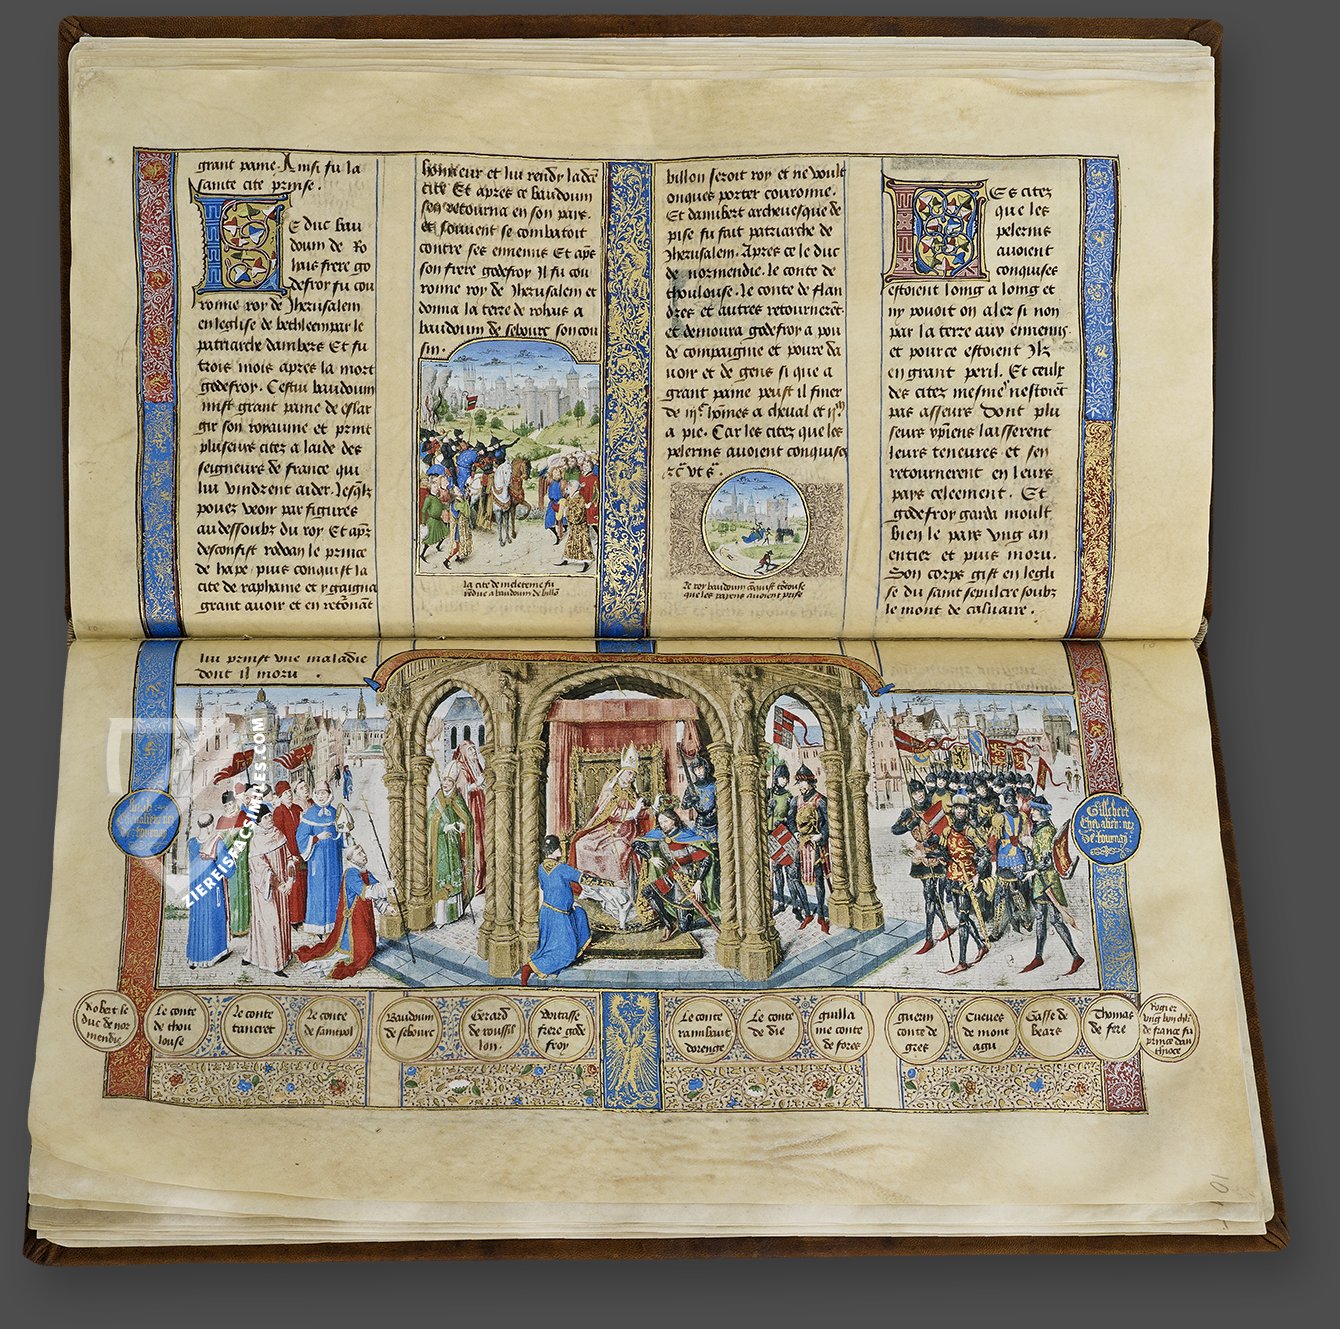 grant paine. Ainsi fu la
sainte cite prinse.
Le duc bau
doum de Ro
hais frere go
defroy fu cou
ronne roy de Jherusalem
en leglise de bethleem par le
patriarche dambert Et fu
trois mois apres la mort
godefroy. Cestui baudoum
mist grant paine de eslar
gir son royaume et print
pluseurs citez a laide des
seigneurs de france qui
lui vindrent aider.
pouez veoir par figures
au dessoubz du roy Et
desconfist rodoan le prince
de hape puis conquist la
cite de raphaine et y gaigna
grant auoir et en
honneur et lui rendy ladicte
cite Et apres ce baudoum
sen retourna en son pays.
et souuent se combatoit
contre ses ennemis Et apres
son frere godefroy Il fu cou
ronne roy de Jherusalem et
donna la terre de rohais a
baudoum de sebourc son cou
sin.
la cite de meleteme fu
rendue a baudoum de billon
billon seroit roy et ne voult
onques porter couronne.
Et dambert archeuesque de
pise fu fait patriarche de
Jherusalem. Apres ce le duc
de normendie. le conte de
thoulouse. le conte de flan
dres et autres retournerent
et demoura godefroy a pou
de compaignie et poure da
uoir et de gens si que a
grant paine peust il finer
de hommes a cheual et
a pie. Car les citez que les
pelerins auoient conquises
Le roy baudoum conquist
que les paiens auoient prise
Les citez
que les
pelerins
auoient
conquises
estoient loing a loing et
ny pouoit on alez si non
par la terre aux ennemis
et pource estoient Ilz
en grant peril. Et ceulx
des citez mesmes nestoient
pas asseurs dont plu
seurs laisserent
leurs teneures et sen
retournerent en leurs
pays celeement. Et
godefroy garda moult
bien le pays vng an
entier et puis moru.
Son corps gist en legli
se du saint sepulcre soubz
le mont de caluaire.
lui prinst vne maladie
dont il moru
ZIEREIS FACSIMILES.COM
Chevalier nez
de tournay
Gillebert
Chevalier nez
de tournay
Robert le
duc de nor
mendie
Le conte
de thou
louse
Le conte
tancret
Le conte
de sainpol
Baudoum
de sebourc
Gerard
de roussil
lon.
Wistasse
frere gode
froy
Le conte
rambaut
dorenge
Le conte
de die
guilla
me conte
de fores
guerin
conte de
gres
Cueues
de mont
agu
Gasse de
bears
Thomas
de fere
Rogier
vng
de france fu
prince dan
thioce
101